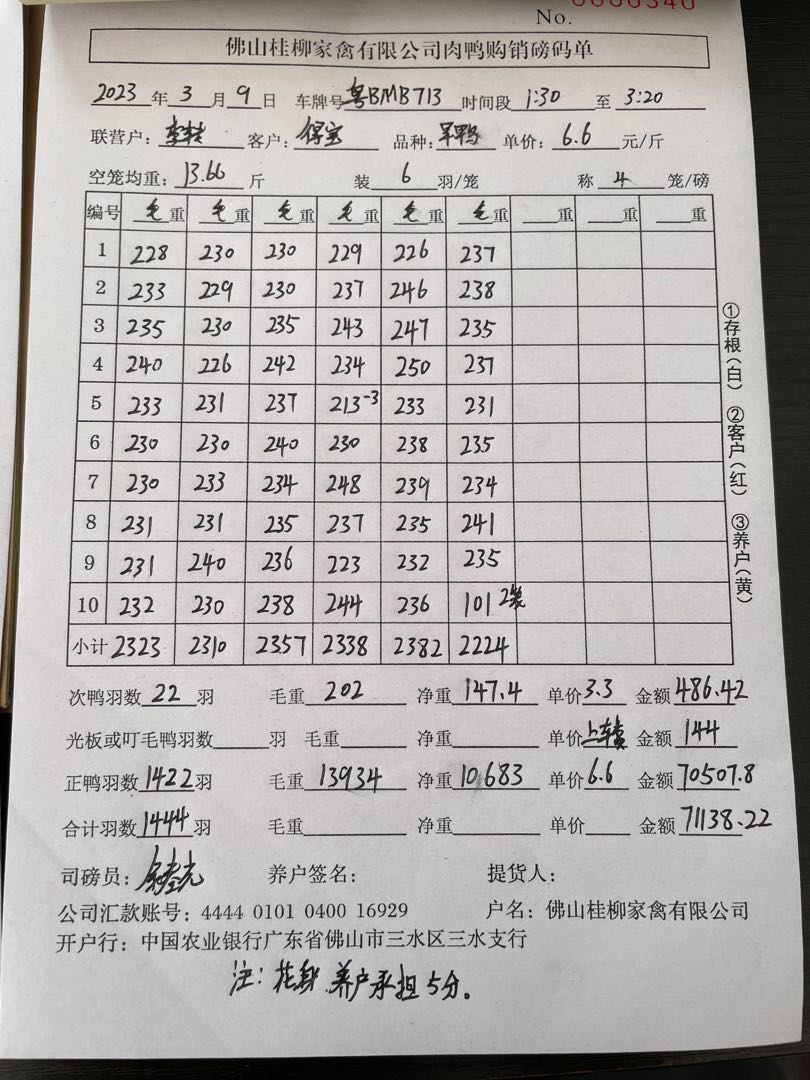 No. 0000340
佛山桂柳家禽有限公司肉鸭购销磅码单
2023 年 3 月 9 日 车牌号 粤BMB713 时间段 1:30 至 3:20
联营户: 客户: 保宝 品种: 单价: 6.6 元/斤
空笼均重: 13.66 斤 装 6 羽/笼 称 4 笼/磅
编号 毛重 毛重 毛重 毛重 毛重 毛重 重 重 重
1 228 230 230 229 226 237
2 233 229 230 237 246 238
3 235 230 235 243 247 235
4 240 226 242 234 250 237
5 233 231 237 213-3 233 231
6 230 230 240 230 238 235
7 230 233 234 248 239 234
8 231 231 235 237 235 241
9 231 240 236 223 232 235
10 232 230 238 244 236 101 2笼
小计 2323 2310 2357 2338 2382 2224
①存根(白) ②客户(红) ③养户(黄)
次鸭羽数 22 羽 毛重 202 净重 147.4 单价 3.3 金额 486.42
光板或叮毛鸭羽数 羽 毛重 净重 单价 上车费 金额 144
正鸭羽数 1422 羽 毛重 13934 净重 10683 单价 6.6 金额 70507.8
合计羽数 1444 羽 毛重 净重 单价 金额 71138.22
司磅员: 养户签名: 提货人:
公司汇款账号: 4444 0101 0400 16929 户名: 佛山桂柳家禽有限公司
开户行: 中国农业银行广东省佛山市三水区三水支行
注: 花身 养户承担5分。